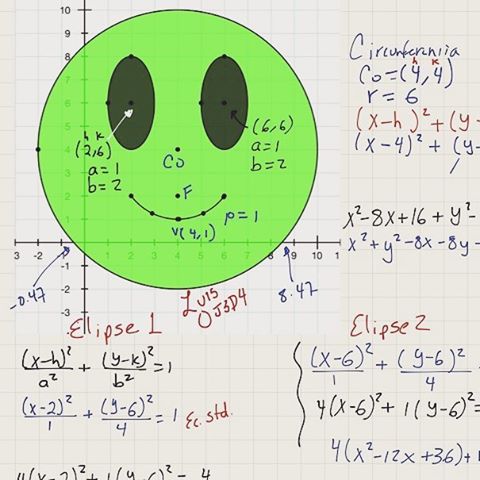 10
8
6
4
2
1
-1
-2
-3
3 -2 -1 1 2 3 4 5 6 7 8 9 10 1
h k
(2,6)
a=1
b=2
(6,6)
a=1
b=2
Co
F
p=1
V(4,1)
-0.47
8.47
Luis
OJ3D4
Circunferencia
h k
Co=(4,4)
r = 6
(x-h)²+(y-
(x-4)² + (y-
x²-8x+16 + y²-
x²+y²-8x-8y-
Elipse 1
(x-h)²/a² + (y-k)²/b² =1
(x-2)²/1 + (y-6)²/4 = 1 Ec. std.
4(x-2)²+1(y-6)²= 4
Elipse 2
(x-6)²/1 + (y-6)²/4
4(x-6)²+1(y-6)²=
4(x²-12x+36)+